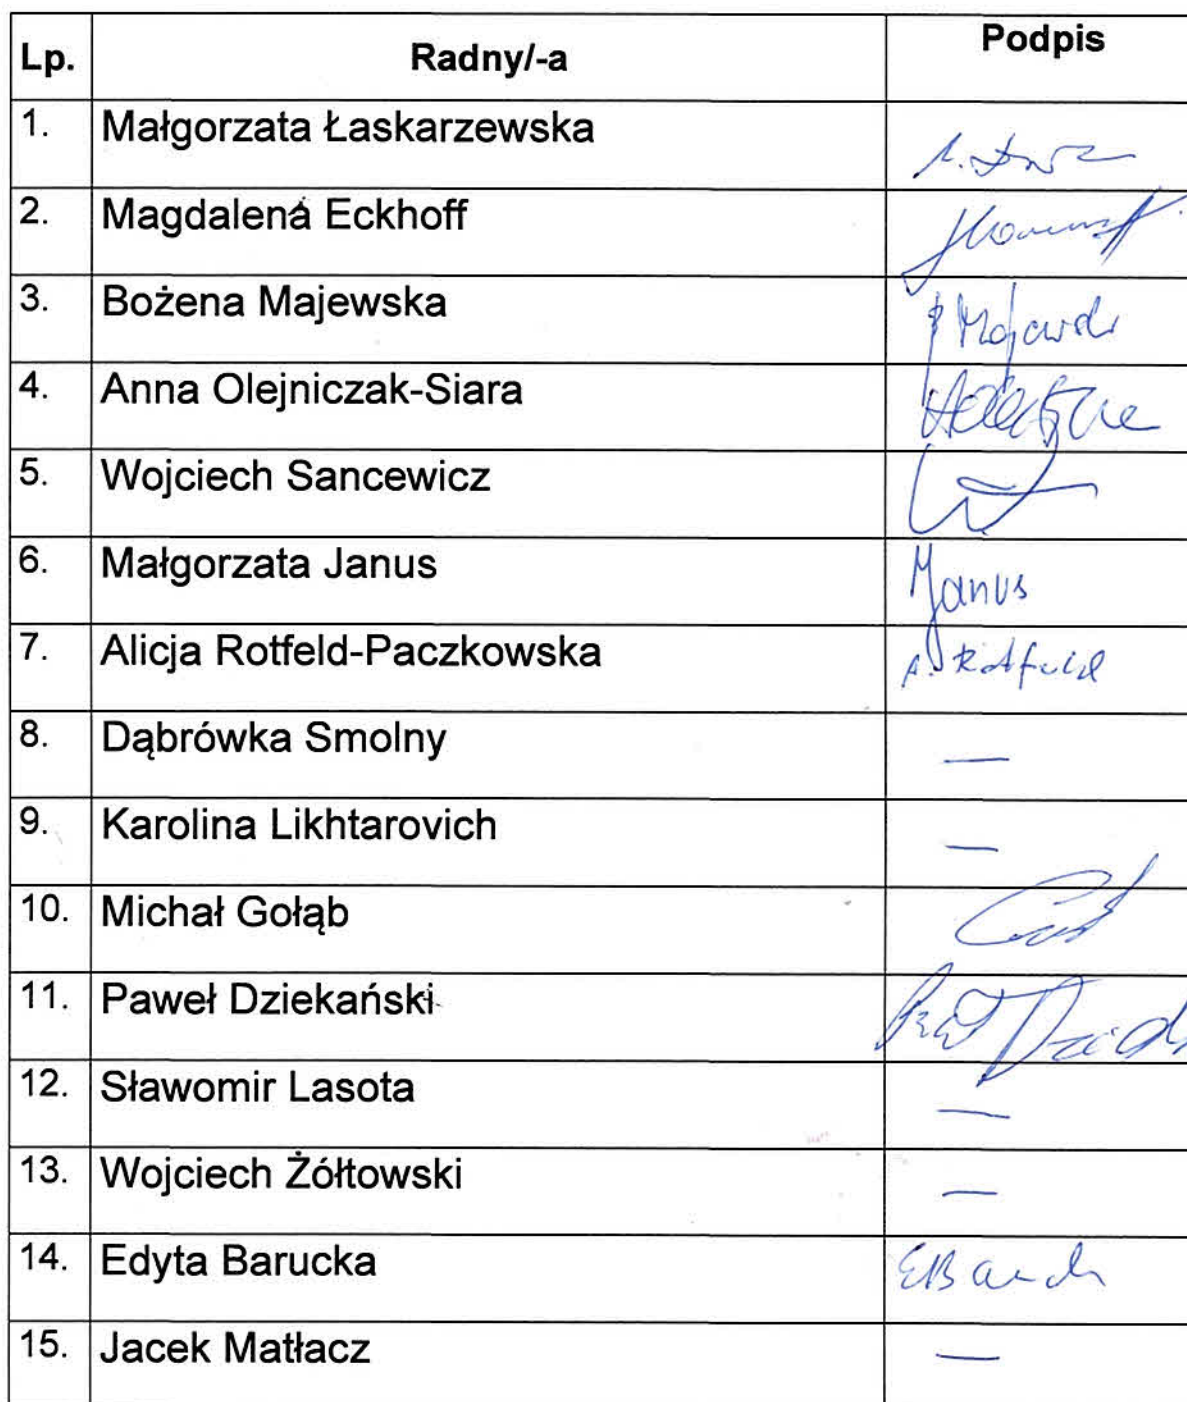 Lp. Radny/-a Podpis
1. Małgorzata Łaskarzewska
2. Magdalena Eckhoff
3. Bożena Majewska
4. Anna Olejniczak-Siara
5. Wojciech Sancewicz
6. Małgorzata Janus MJanus
7. Alicja Rotfeld-Paczkowska A. Rotfeld
8. Dąbrówka Smolny —
9. Karolina Likhtarovich —
10. Michał Gołąb
11. Paweł Dziekański
12. Sławomir Lasota —
13. Wojciech Żółtowski —
14. Edyta Barucka
15. Jacek Matłacz —